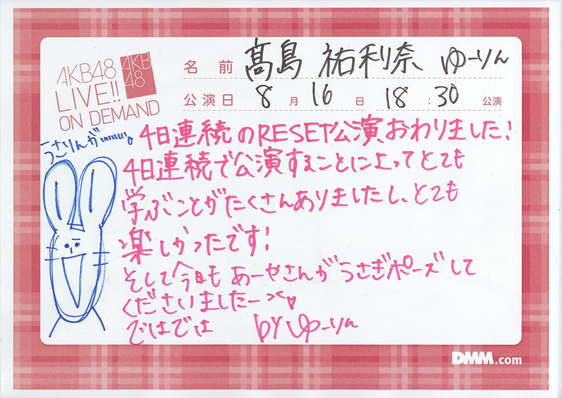 AKB48
LIVE!!
ON DEMAND
AKB
48
名前 髙島 祐利奈 ゆーりん
公演日 8月16日 18:30 公演
うさりんがーーー。
4日連続のRESET公演おわりました！
4日連続で公演することによってとても
学ぶことがたくさんありましたし、とても
楽しかったです！
そして今日も あーやさんが うさぎポーズして
くださいましたー><♥
ではでは by ゆーりん
DMM.com